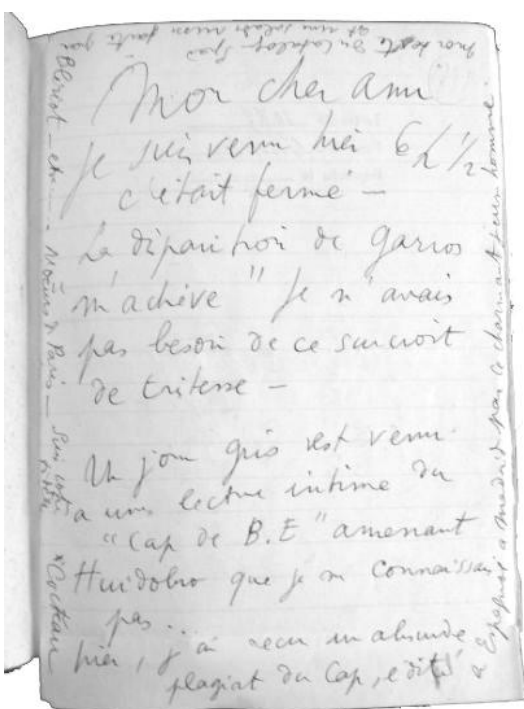 Mon cher ami
Je suis venu hier 6h 1/2
c'était fermé —
La disparition de Garros
m'achève" Je n'avais
pas besoin de ce surcroit
de tritesse —
Un jour gris est venu
a une lecture intime du
"Cap de B.E" amenant
Huidobro que je ne connaissais
pas...
hier, j'ai recu un absurde
plagiat du Cap, edité
a Madrid par ce charmant jeune homme.
mon texte du Catalog
Blériot — etc — Moeurs de Paris —
Cocteau